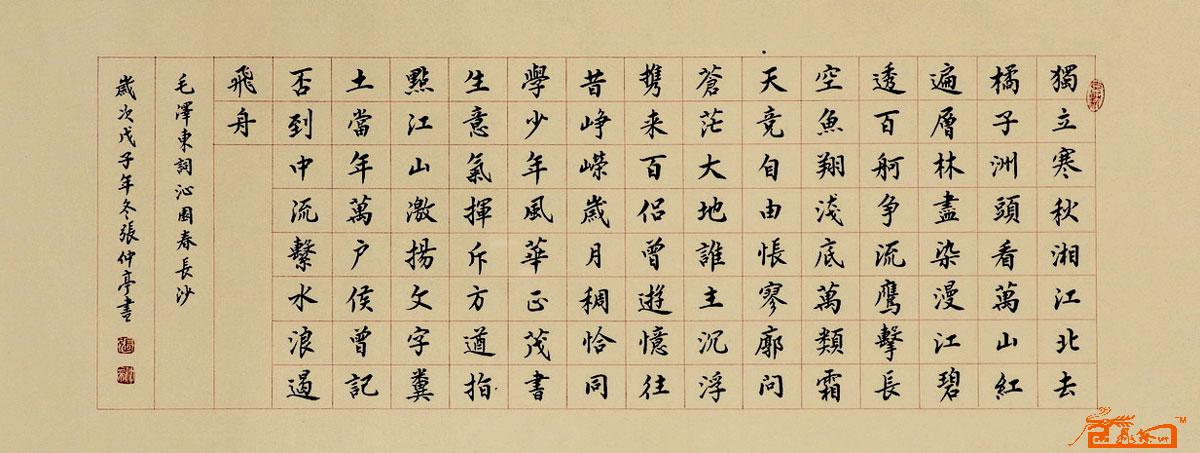 獨立寒秋湘江北去
橘子洲頭看萬山紅
遍層林盡染漫江碧
透百舸争流鹰擊長
空魚翔淺底萬類霜
天竟自由悵寥廓問
蒼茫大地誰主沉浮
携来百侣曾遊憶往
昔峥嵘歲月稠恰同
學少年風華正茂書
生意氣揮斥方遒指
點江山激揚文字糞
土當年萬户侯曾記
否到中流繫水浪遏
飛舟
毛澤東詞沁園春長沙
歲次戊子年冬張仲亭書